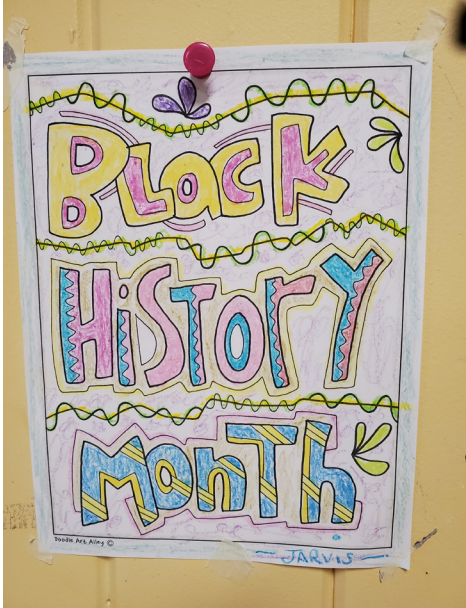 Black
History
Month
Doodle Art Alley ©
- JARVIS -